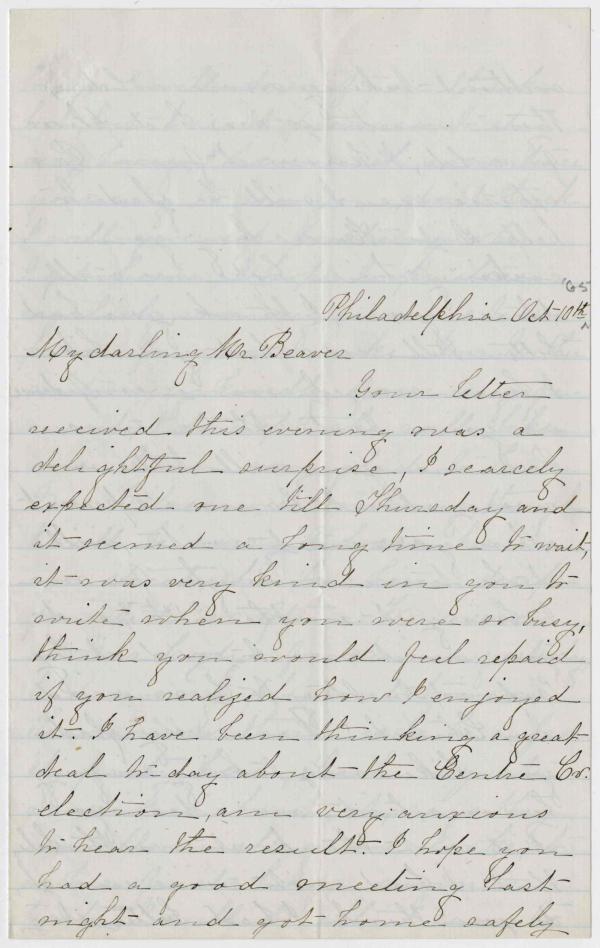 '65
Philadelphia Oct 10th
^
My darling Mr Beaver
Your letter
received this evening was a
delightful surprise, I scarcely
expected one till Thursday and
it seemed a long time to wait,
it was very kind in you to
write when you were so busy,
think you would feel repaid
if you realized how I enjoyed
it. I have been thinking a great
deal to-day about the Centre Co.
election, am very anxious
to hear the result. I hope you
had a good meeting last
night and got home safely